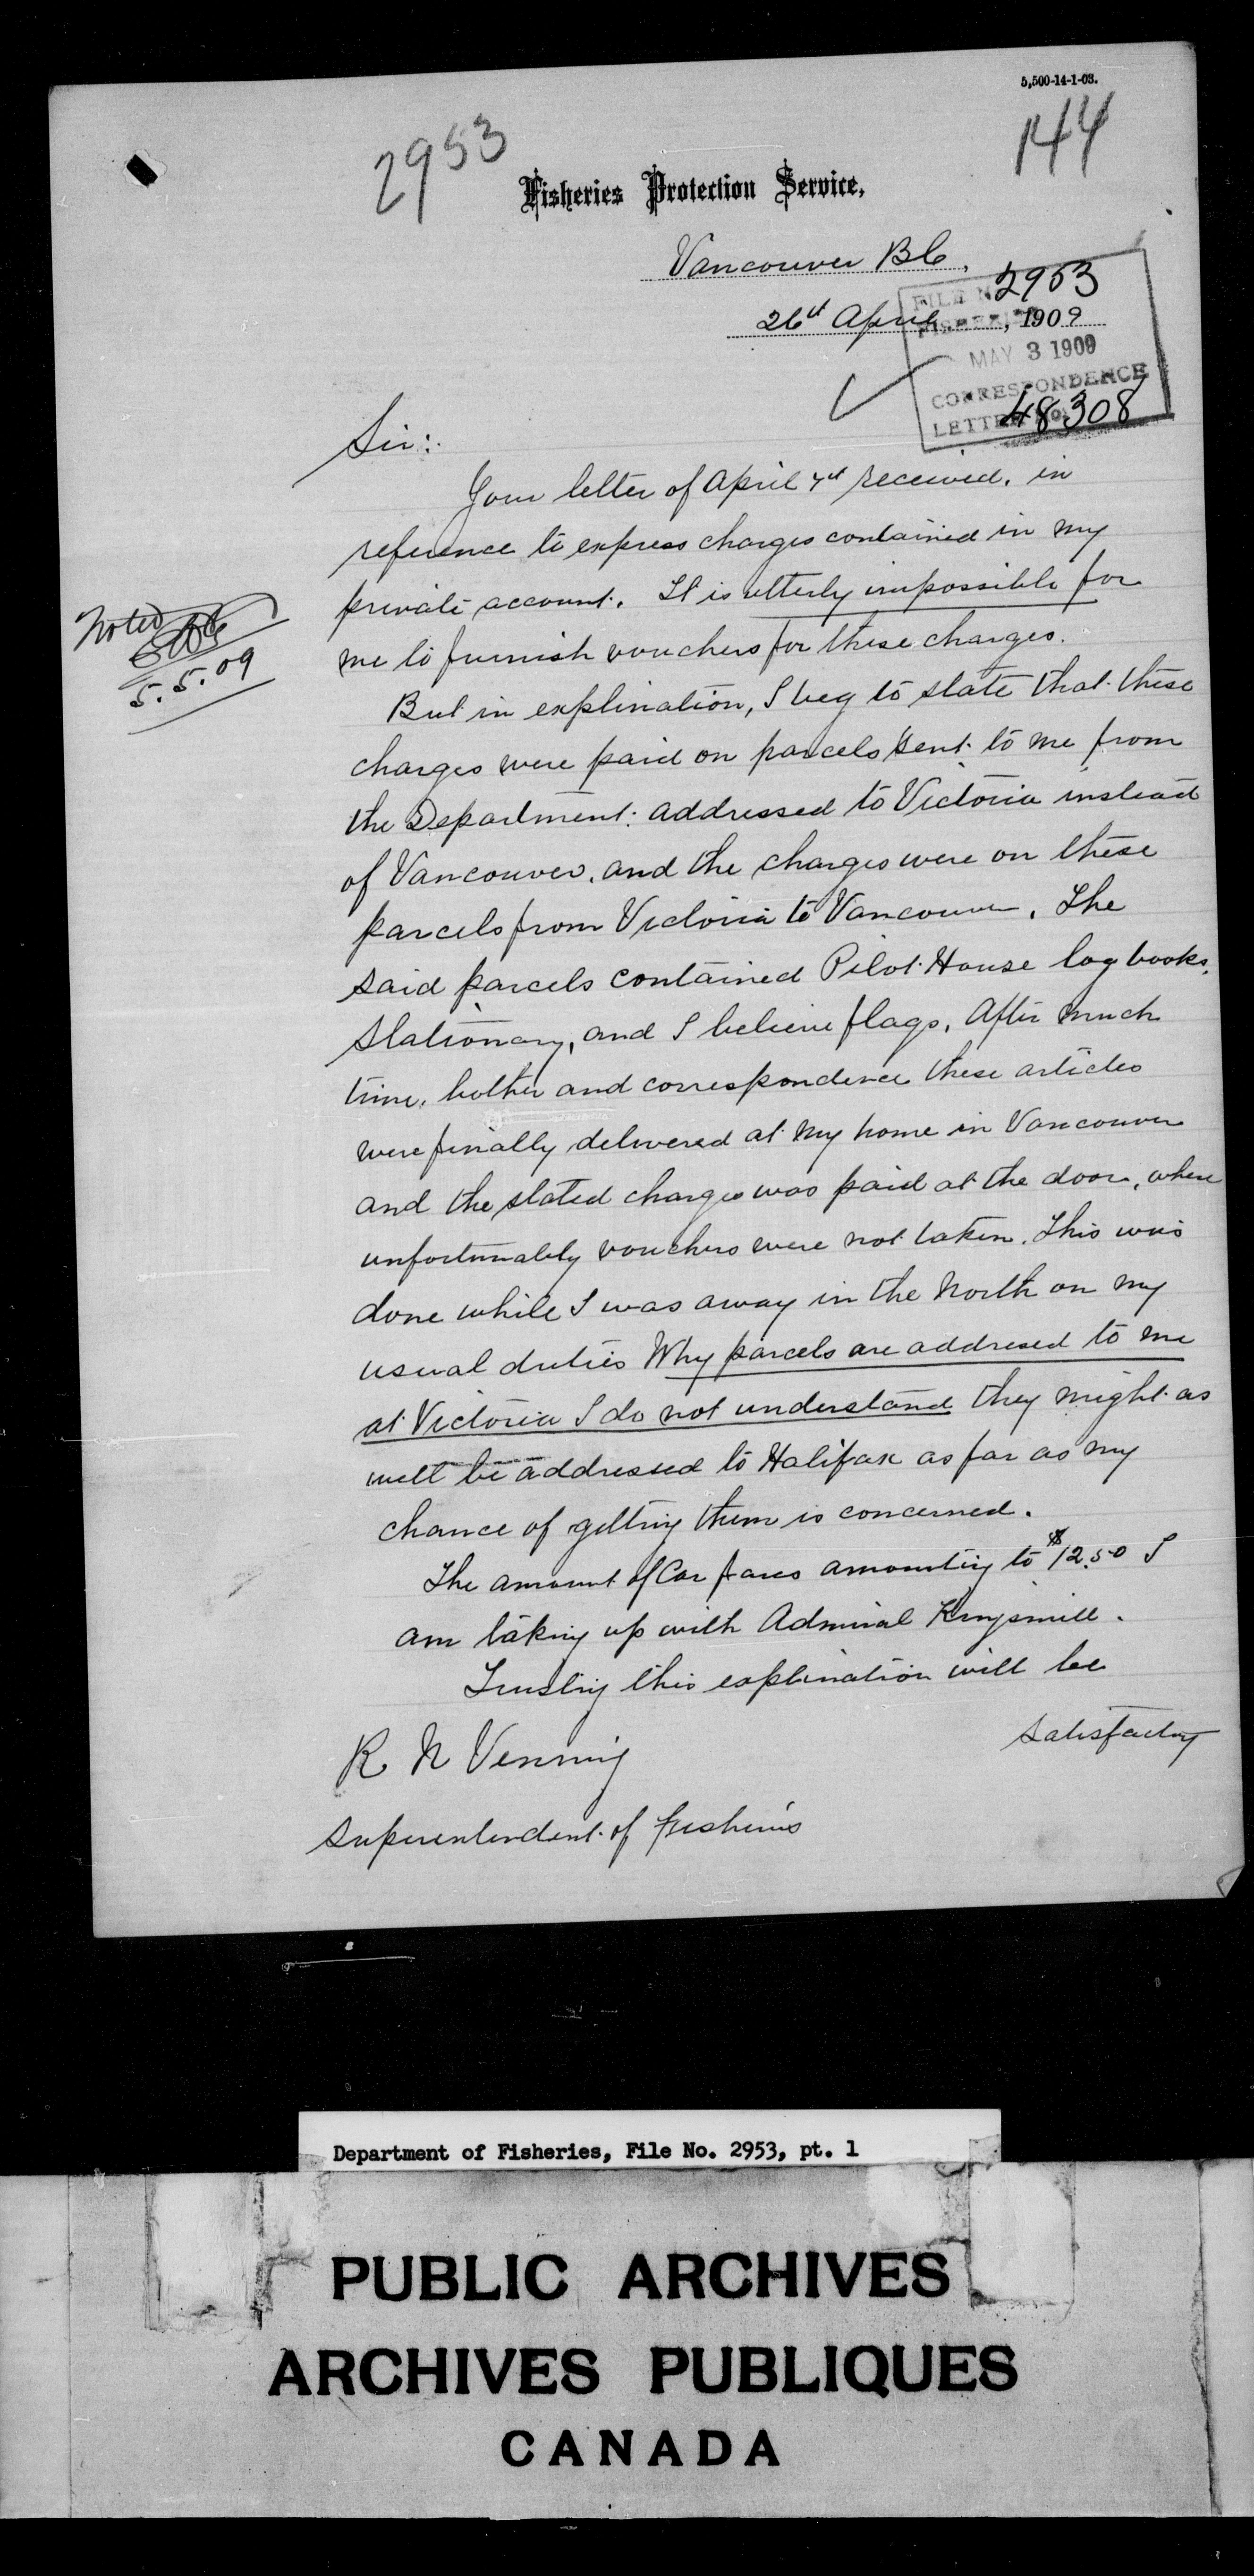 5,500-14-1-08.
2953
144
Fisheries Protection Service,
Vancouver BC,
FILE No. 2953
26th April, 1909
FISHERIES
MAY 3 1909
CORRESPONDENCE
LETTER No. 48308
Sir:
Your letter of April 7th received, in
reference to express charges contained in my
private account. It is utterly impossible for
me to furnish vouchers for these charges.
Noted
5.5.09
But in explination, I beg to state that these
charges were paid on parcels sent to me from
the Department: addressed to Victoria instead
of Vancouver, and the charges were on these
parcels from Victoria to Vancouver. The
said parcels contained Pilot House log books,
stationary, and I believe flags. After much
time, bother and correspondence these articles
were finally delivered at my home in Vancouver
and the stated charges was paid at the door, where
unfortunately vouchers were not taken. This was
done while I was away in the North on my
usual duties Why parcels are addressed to me
at Victoria I do not understand they might as
well be addressed to Halifax as far as my
chance of getting them is concerned.
The amount of Car fares amounting to $12.50 I
am taking up with Admiral Kingsmill.
Trusting this explination will be
satisfactory
R N Venning
Superentendent of Fisheries
Department of Fisheries, File No. 2953, pt. 1
PUBLIC ARCHIVES
ARCHIVES PUBLIQUES
CANADA